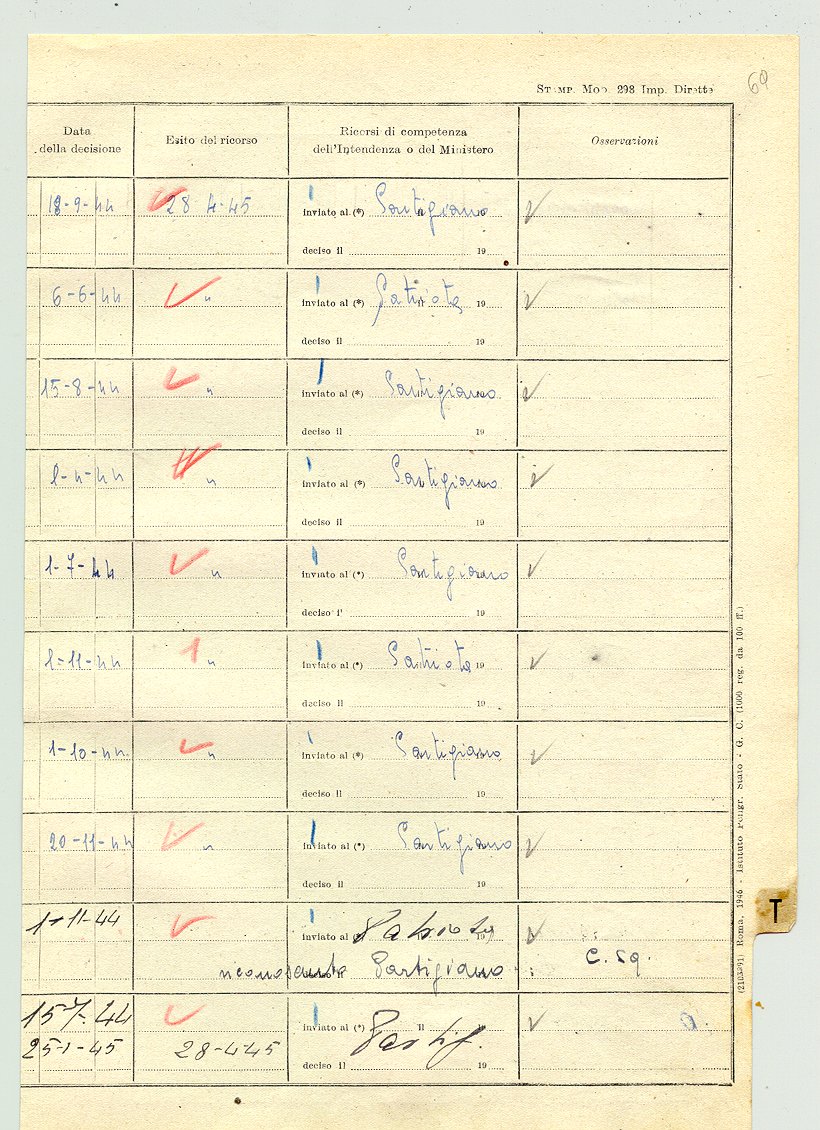 STAMP. MOD. 298 Imp. Dirette 69
Data
della decisione
Esito del ricorso
Ricorsi di competenza
dell'Intendenza o del Ministero
Osservazioni
18-9-44 28 4-45 inviato al (*) Partigiano
deciso il 19
6-6-44 " inviato al (*) Patriota 19
deciso il 19
15-8-44 " inviato al (*) Partigiano
deciso il 19
1-4-44 " inviato al (*) Partigiano
deciso il 19
1-7-44 " inviato al (*) Partigiano
deciso il 19
1-11-44 " inviato al (*) Patriota 19
deciso il 19
1-10-44 " inviato al (*) Partigiano
deciso il 19
20-11-44 " inviato al (*) Partigiano
deciso il 19
1-11-44 inviato al (*) Patriota 19
riconosciuto deciso il Partigiano
15-7-44 inviato al (*) il Partig. 19
25-1-45 28-4-45
deciso il 19
T
Roma, 1946 - Istituto Poligr. Stato - G. C. (1000 reg. da 100 ff.)